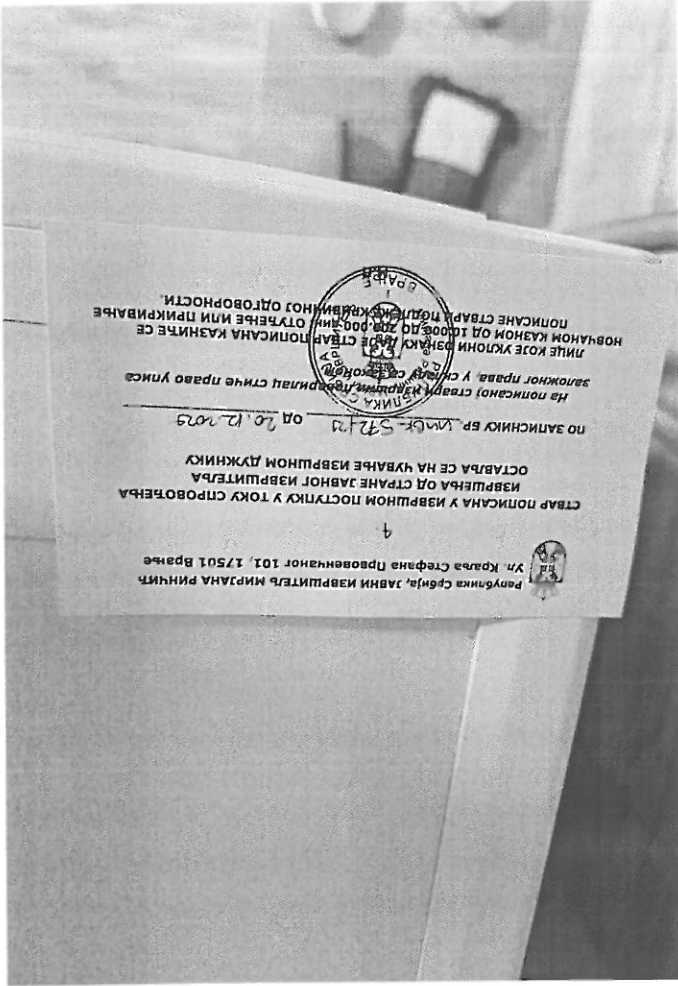 Република Србија, ЈАВНИ ИЗВРШИТЕЉ МИРЈАНА РИНЧИЋ
Ул. Краља Стефана Првовенчаног 101, 17501 Врање
СТВАР ПОПИСАНА У ИЗВРШНОМ ПОСТУПКУ У ТОКУ СПРОВОЂЕЊА
ИЗВРШЕЊА ОД СТРАНЕ ЈАВНОГ ИЗВРШИТЕЉА
ОСТАВЉА СЕ НА ЧУВАЊЕ ИЗВРШНОМ ДУЖНИКУ
ПО ЗАПИСНИКУ БР. ИИВК-572/23 ОД 20.12.2023
На пописаној ствари извршни поверилац стиче право уписа
заложног права, у складу са законом.
ЛИЦЕ КОЈЕ УКЛОНИ ОЗНАКУ ДА ЈЕ СТВАР ПОПИСАНА КАЗНИЋЕ СЕ
НОВЧАНОМ КАЗНОМ ОД 10.000 ДО 200.000 ДИН. ОТУЂЕЊЕ ИЛИ ПРИКРИВАЊЕ
ПОПИСАНЕ СТВАРИ ПОДЛЕЖЕ КРИВИЧНОЈ ОДГОВОРНОСТИ.
ВРАЊЕ